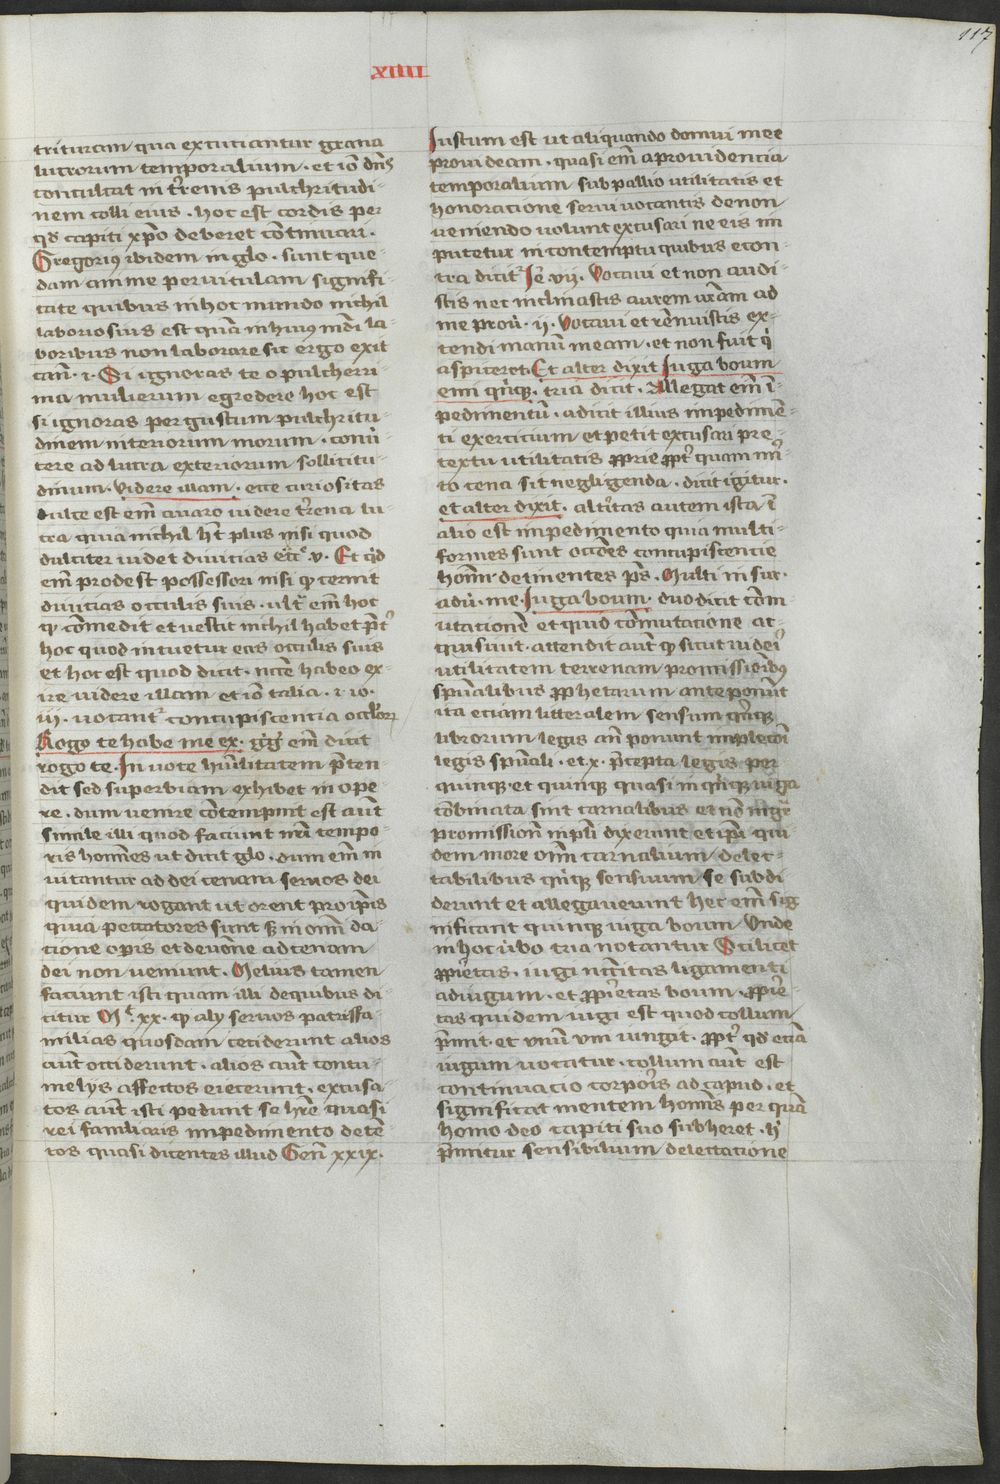 117
XIIII
trituram qua excutiantur grana
lucrorum temporalium · et iō dn̄s
conculcat in t̓renis pulchritudi-
nem colli eius · hoc est cordis per
qd̄ capiti xp̄o deberet cōtinuari ·
Gregorius ibidem in glo · sunt que-
dam anime per uitulam signifi-
cate quibus in hoc mundo nichil
laboriosius est quā in huius mūdi la-
boribus non laborare sic ergo exit
can̄ · i · Si ignoras te o pulcherri-
ma mulierum egredere hoc est
si ignoras per gustum pulchritu-
dinem interiorum morum · conu̓-
tere ad lucra exteriorum sollicitu-
dinum · videre illam · ecce curiositas
dulce est em̄ auaro uidere t̓rena lu-
cra quia nichil hēt plus nisi quod
dulciter uidet diuitias ecc̄ᵉ v · Et qͥd
em̄ prodest possessori nisi qꝫ cernit
diuicias occulis suis · ultᵃ em̄ hoc
qꝫ cōmedit et uestit nichil habet p̄t̓
hoc quod intuetur eas occulis suis
et hoc est quod dicit · ncc̄e habeo ex-
ire uidere illam et iō talia · i io ·
iij · uocantᵣ concupiscencia occl̓orꝝ
Rogo te habe me ex · gg̓ em̄ dicit
rogo te · In uoce hūilitatem p̄ten-
dit sed superbiam exhibet in ope-
re · dum uenire cōtempnit est aūt
simile illi quod faciunt nr̄i tempo-
ris homēs ut dicit glo · dum em̄ in
uitantur ad dei cenam seruos dei
quidem rogant ut orent pro ip̄is
quia peccatores sunt sꝫ in om̄i da
cione op̄is et deuōne ad cenam
dei non ueniunt · Melius tamen
faciunt isti quam illi de quibus di-
citur Mᵗ · xx · qꝫ aly seruos patrisfa-
milias quosdam ceciderunt alios
aūt occiderunt · alios aūt contu-
melijs affectos eiecerunt · excusa-
tos aūt isti pedunt se hr̄e quasi
rei familiaris impedimento detē-
tos quasi dicentes illud Gen̄ xxix ·
Iustum est ut aliquando domui mee
prouideam · quasi em̄ a prouidencia
temporalium sub pallio utilitatis et
honoracione serui uocantis de non
ueniendo uolunt excusari ne eis im
putetur in contemptu quibus econ-
tra dicitᵣ Ie · vij · Vocaui et non audi-
stis nec inclinastis aurem ur̄am ad
me prou̓ · ij · Vocaui et rēnuistis ex-
tendi manū meam · et non fuit qͥ
aspiceret · Et alter dixit Iuga boum
emi qͥnqꝫ · tria dicit · Allegat em̄ ī-
pedimentū · adicit illius impedimē-
ti exercicium et petit excusari pre-
textu utilitatis ꝓprie ꝓpt̓ quam in
to cena sit negligenda · dicit igitur ·
et alter dixit · alt̓itas autem ista ī
alio est impedimento quia multi-
formes sunt occōes concupiscencie
hom̄ detinentes ip̄s · Multi in sur-
adu̓ · me · Iuga boum · duo dicit cōm-
utacionē et quid cōmutacione ac-
quisiuit · attendit aūt qꝫ sicut iudei
utilitatem terrenam promissionibꝰ
spūalibus ꝓphetarum anteponūt
ita eciam litteralem sensum qͥnqꝫ
librorum legis an̄ ponunt impletoī
legis spūali · et x · p̄cepta legis per
quinque et quinque quasi in qͥnqꝫ iuga
cōbinata sint carnalibus et nō mgᵃ
promission̄ impli dixerunt et ip̄i qui
dem more om̄i carnalium delec-
tabilibus qͥnqꝫ sensuum se subdi
derunt et allegauerunt hec em̄ sig
nificant quinque iuga boum · Vnde
in hoc u̓bo tria notantur Scilicet
ꝓpͥetas · iugi nc̄c̄itas ligamenti
ad iugum · et ꝓpͥetas boum · ꝓpͥe-
tas quidem iugi est quod collum
p̄mit · et vnū vni iungit · ꝓpt̓ qd̄ eciā
iugum uocatur · collum aūt est
continuacio corporis ad capud · et
significat mentem homīs per quā
homo deo capiti suo subheret · h̓
p̄mitur sensibilium delectacione